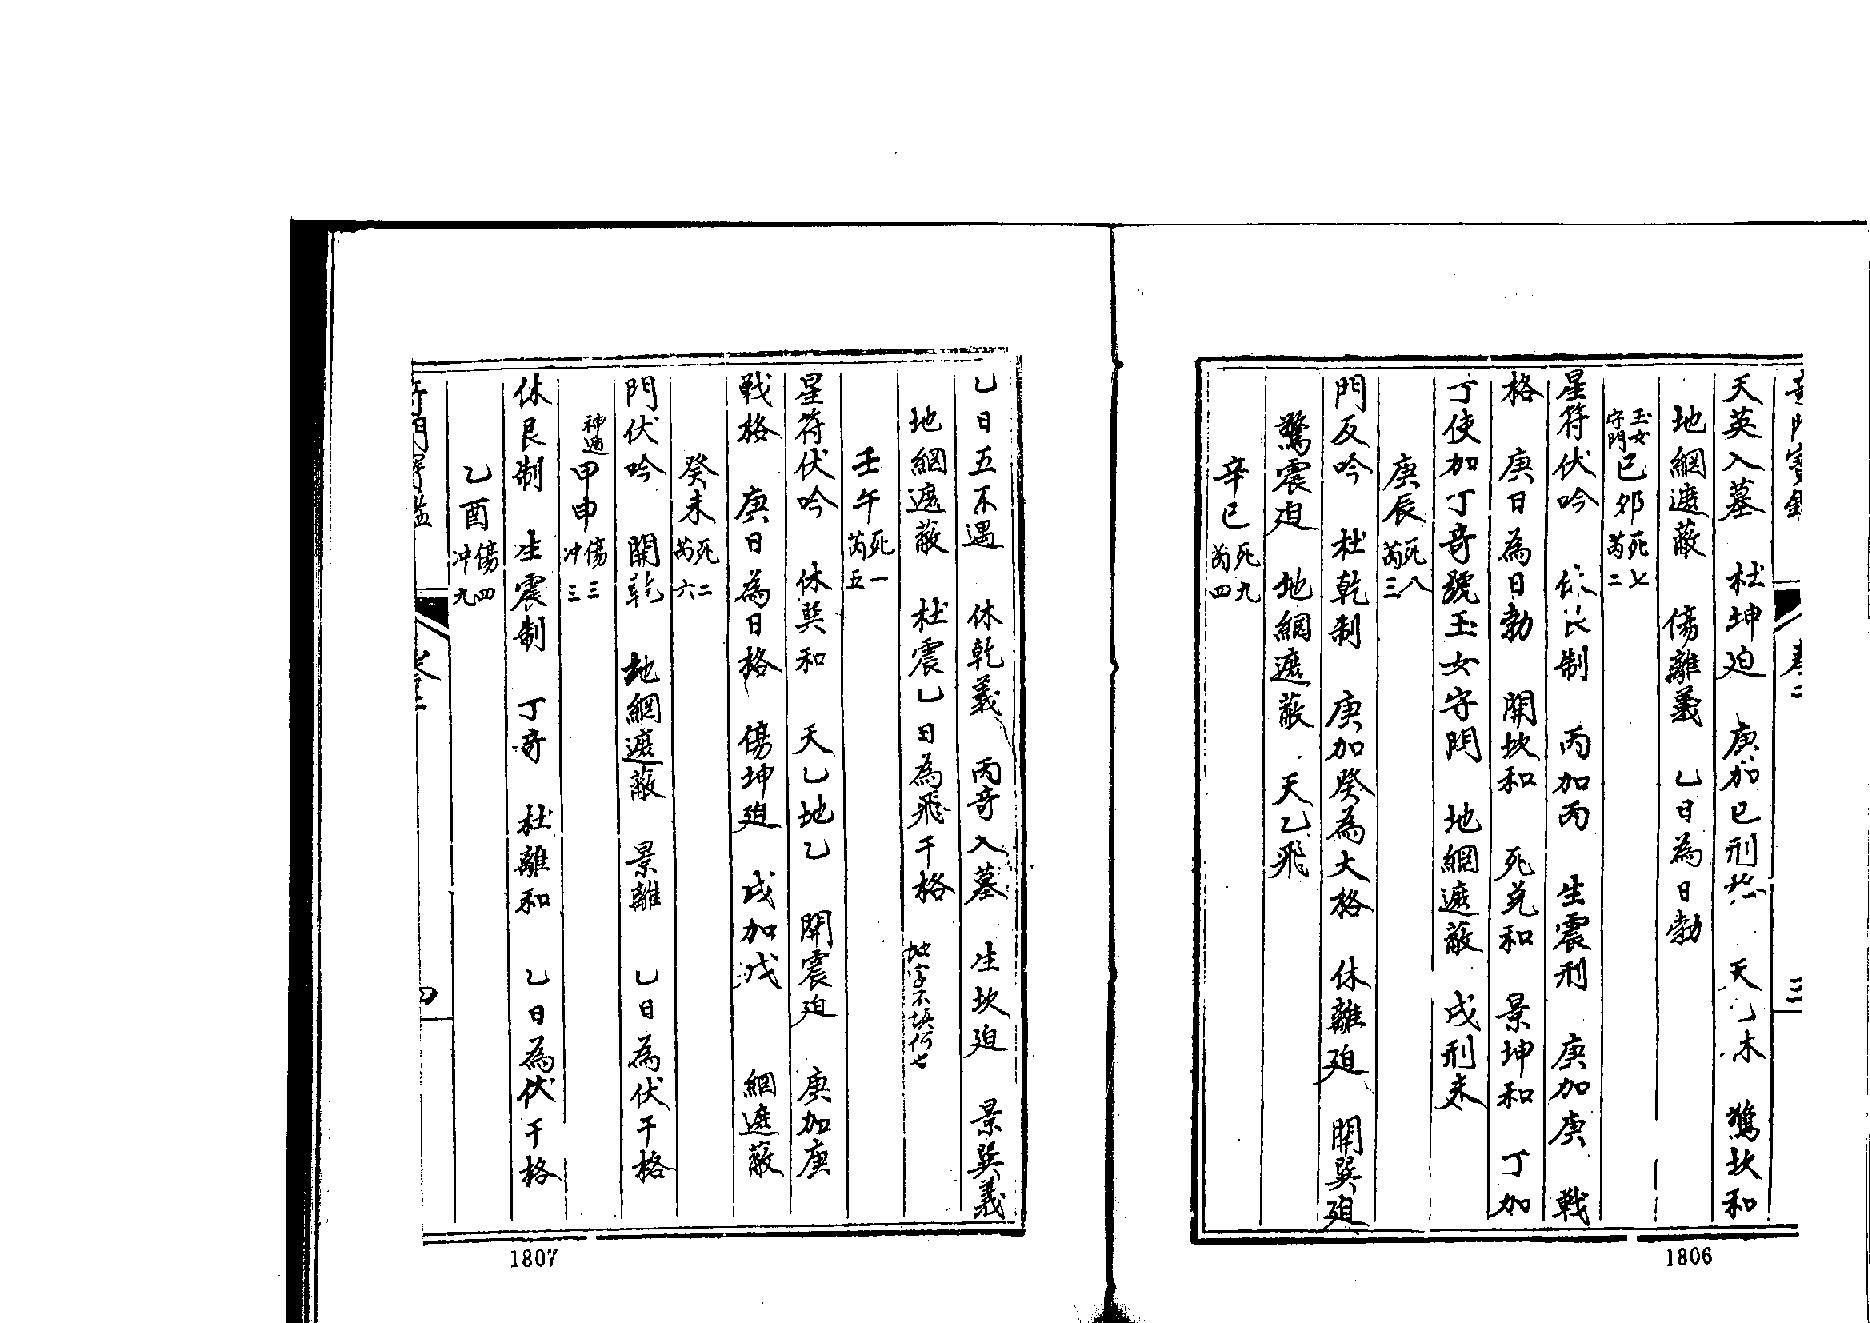 天英入墓　杜坤迫　庚加己刑格　天乙木　驚坎和
地網遮蔽　傷離義　乙日為日勃
玉女守門己卯死七芮二
星符伏吟　休艮制　丙加丙　生震刑　庚加庚　戰
格　庚日為日勃　開坎和　死兌和　景坤和　丁加
丁使加丁奇號玉女守門　地網遮蔽　戌刑未
庚辰死八芮三
門反吟　杜乾制　庚加癸為大格　休離迫　開巽迫
驚震迫　地網遮蔽　天乙飛
辛巳死九芮四
1806
乙日五不遇　休乾義　丙奇入墓　生坎迫　景巽義
地網遮蔽　杜震乙日為飛干格
壬午死一芮五
星符伏吟　休巽和　天乙地乙　開震迫　庚加庚
戰格　庚日為日格　傷坤迫　戊加戊　網遮蔽
癸未死二芮六
門伏吟　開乾　地網遮蔽　景離　乙日為伏干格
神遁甲申傷三冲三
休艮制　生震制　丁奇　杜離和　乙日為伏干格
乙酉傷四冲九
四
1807